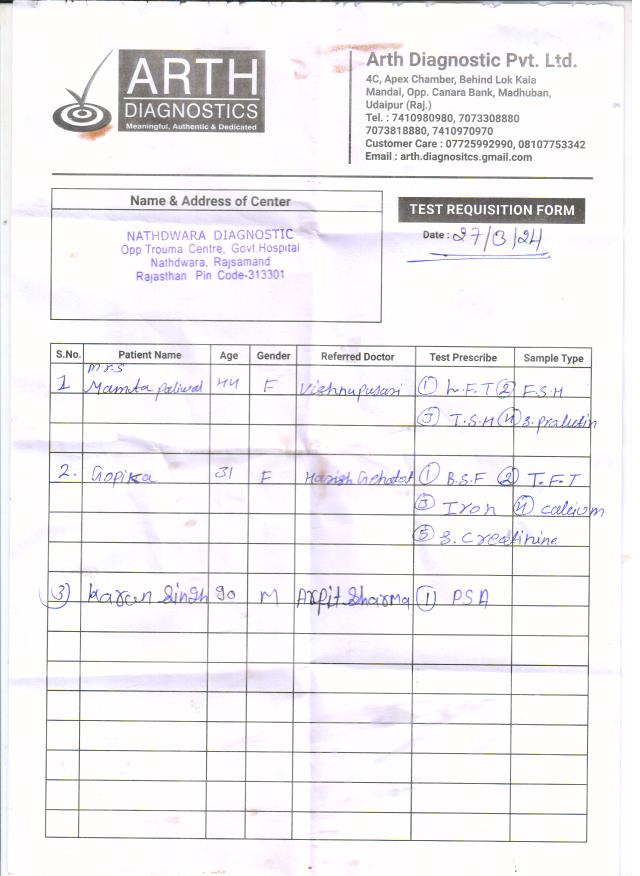 ARTH
DIAGNOSTICS
Meaningful, Authentic & Dedicated
Arth Diagnostic Pvt. Ltd.
4C, Apex Chamber, Behind Lok Kala
Mandal, Opp. Canara Bank, Madhuban,
Udaipur (Raj.)
Tel. : 7410980980, 7073308880
7073818880, 7410970970
Customer Care : 07725992990, 08107753342
Email : arth.diagnositcs.gmail.com
Name & Address of Center
NATHDWARA DIAGNOSTIC
Opp Trouma Centre, Govt.Hospital
Nathdwara, Rajsamand
Rajasthan Pin Code-313301
TEST REQUISITION FORM
Date : 27/3/24
S.No. Patient Name Age Gender Referred Doctor Test Prescribe Sample Type
Mrs
1 Mamta paliwal 44 F ① L.F.T ② F.S.H
③ T.S.H ④ S.pralutin
2. Gopika 31 F Harish ① B.S.F ② T.F.T
③ Iron ④ calcium
⑤ S.creatinine
③ Karan Singh 90 M Arpit Sharma ① PSA